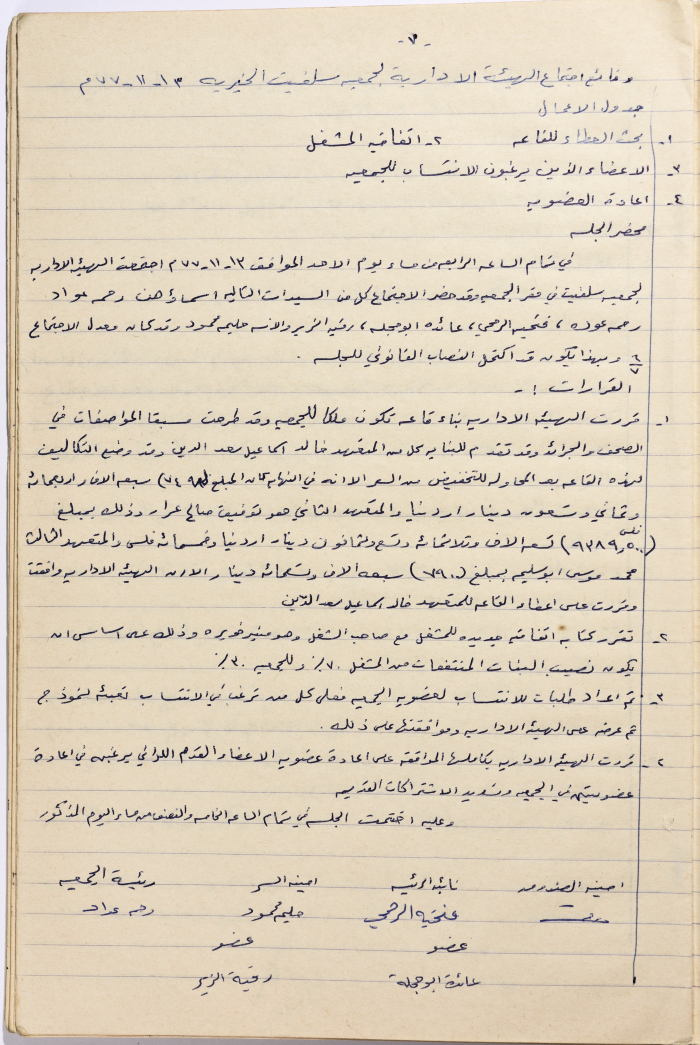 -٧-
وقائع اجتماع الهيئة الادارية لجمعيه سلفيت الخيريه ١٣-١١-٧٧م
جدول الاعمال
١- بحث العطاء للقاعه ٢- اتفاقيه المشغل
٣- الاعضاء الذين يرغبون الانتساب للجمعيه
٤- اعادة العضويه
محضر الجلسه
في تمام الساعه الرابعه من مساء يوم الاحد الموافق ١٣-١١-٧٧م اجتمعت الهيئه الاداريه
لجمعيه سلفيت في مقر الجمعيه وقد حضر الاجتماع كل من السيدات التاليه اسماؤهن رحمه عواد
رحمه عوده ، فتحيه الرحمي ، عائده ابو حجله ، رقيه الزير والانسه حليمه محمود وقد كان معدل الاجتماع
٦/٧ وبهذا يكون قد اكتمل النصاب القانوني للجلسه .
القرارات :-
١- قررت الهيئه الاداريه بناء قاعه تكون ملكا للجمعيه وقد طرحت مسبقا المواصفات في
الصحف والجرائد وقد تقدم للبنايه كل من المتعهد خالد اسماعيل سعد الدين وقد وضع التكاليف
لهذه القاعه بعد المحاوله للتخفيض من السعر الا انه في النهايه كان المبلغ (٧٤٩٨) سبعه الاف واربعمائة
وثماني وتسعون دينار اردنيا والمتعهد الثاني هو توفيق صالح عرار وذلك بمبلغ
(٥٠٠ فلس و٩٣٨٩) تسعه الاف وثلاثمائة وتسع وثمانون دينار اردنيا وخمسمائة فلس والمتعهد الثالث
محمد موسى ابو سليمه بمبلغ (٧٩٠٠) سبعه الاف وتسعمائة دينار الا ان الهيئه الاداريه وافقت
وقررت على اعطاء القاعه للمتعهد خالد اسماعيل سعد الدين
٢- تقرر كتابه اتفاقيه جديده للمشغل مع صاحب المشغل وهو منير وذلك على اساس ان
يكون نصيب البنات المنتفعات من المشغل ٧٠٪ وللجمعيه ٣٠٪
٣- تم اعداد طلبات للانتساب لعضويه الجمعيه فعلى كل من ترغب في الانتساب تعبئة نموذج
ثم عرضه على الهيئه الاداريه وموافقتها على ذلك .
٢- قررت الهيئه الاداريه بكاملها الموافقه على اعادة عضويه الاعضاء القدم اللواتي يرغبن في اعادة
عضويتهن في الجمعيه وتسديد الاشتراكات القديمه
وعليه اختتمت الجلسه في تمام الساعه الخامسه والنصف من مساء اليوم المذكور
امينه الصندوق نائبه الرئيسه امينه السر رئيسة الجمعيه
فتحيه الرحمي حليمه محمود رحمه عواد
عضو عضو
عائدة ابو حجلة رقية الزير